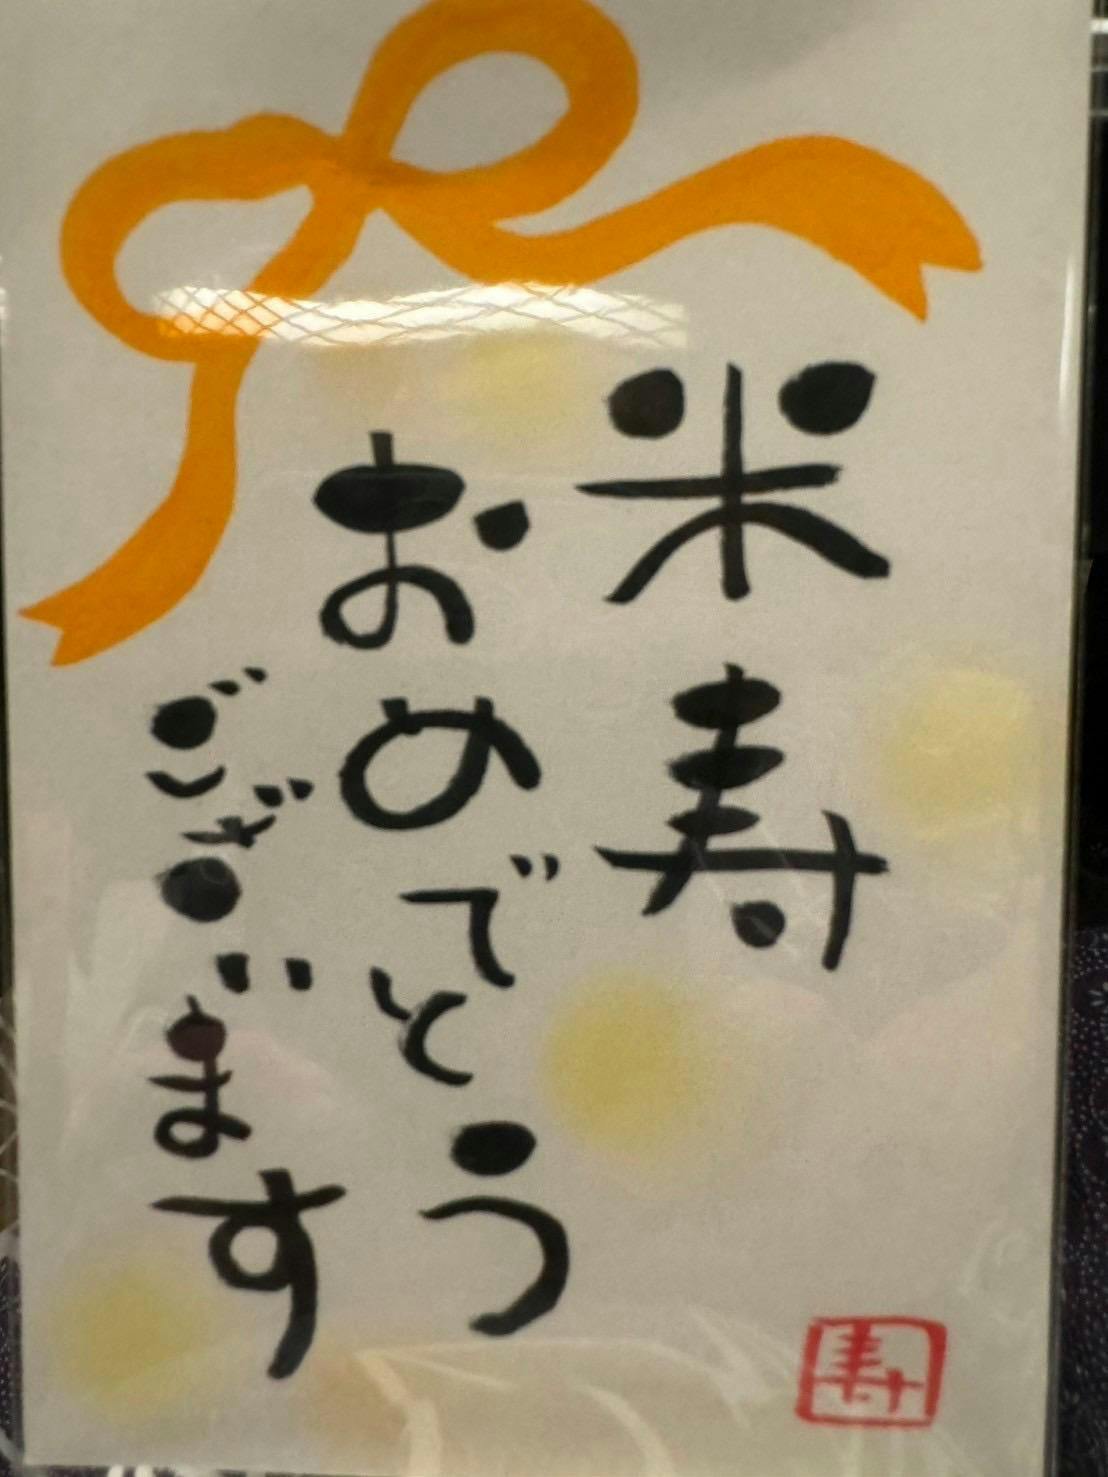 米寿
おめでとう
ございます
寿